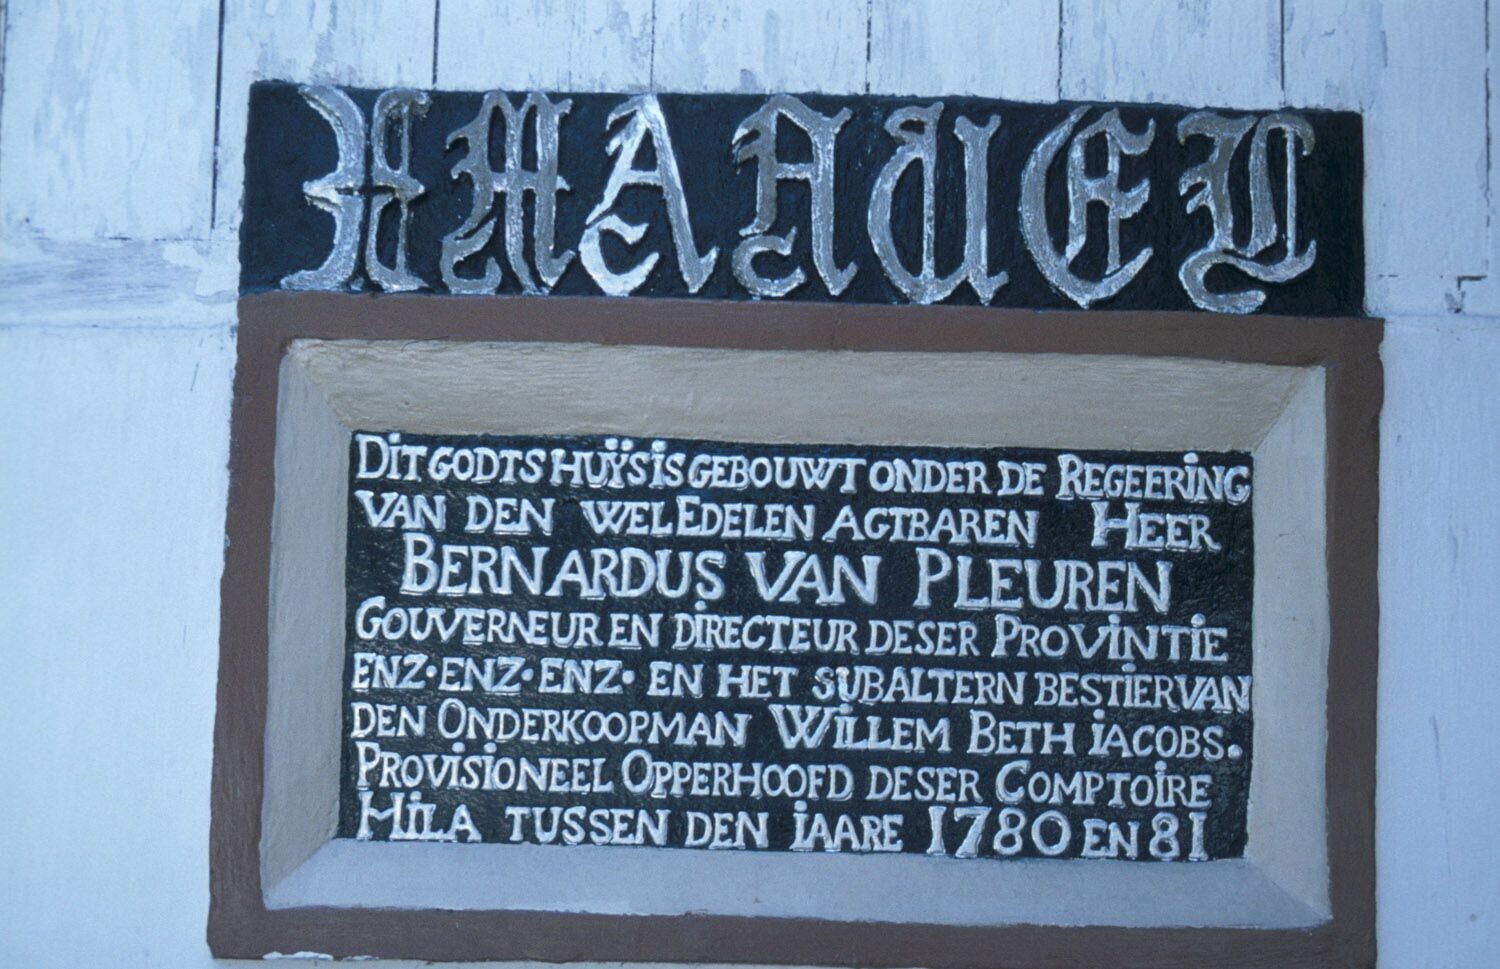 IMANUEL
DIT GODTS HUŸS IS GEBOUWT ONDER DE REGEERING
VAN DEN WEL EDELEN AGTBAREN HEER
BERNARDUS VAN PLEUREN
GOUVERNEUR EN DIRECTEUR DESER PROVINTIE
ENZ· ENZ· ENZ· EN HET SUBALTERN BESTIER VAN
DEN ONDERKOOPMAN WILLEM BETH IACOBS.
PROVISIONEEL OPPERHOOFD DESER COMPTOIRE
HILA TUSSEN DEN IAARE 1780 EN 81